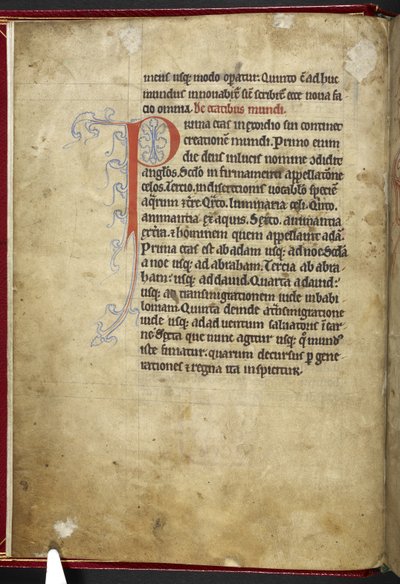 meus usq; modo opatur. Quinto cū adhuc
mundus innouabit᷑ sic scribit᷑ ecce noua fa
cio omnia. De etatibus mundi.
Prima etas in exordio sui continet
creationē mundi. Primo enim
die deus in lucis nomine ɔdidit
anglōs. Scdō in firmamenti appellatōne
celos. Tercio. in discretionis vocablo speciē
aqrum et tre. Qrto. luminaria celi. Qnto.
animantia ex aquis. Sexto. animantia
ex tra. et hominem quem appellauit adā.
Prima etas est ab adam usq; ad noe. Scda
a noe usq; ad abraham. Tercia ab abra
ham. usq; ad dauid. Quarta a dauid.
usq; ad transmigrationem iude in babi
loniam. Quinta deinde a transmigratione
iude usq; ad aduentum saluatoris ī car
ne. Sexta que nunc agitur usq; quo mundus
iste finiatur. quarum decursus p gene
rationes et regna ita inspicitur.